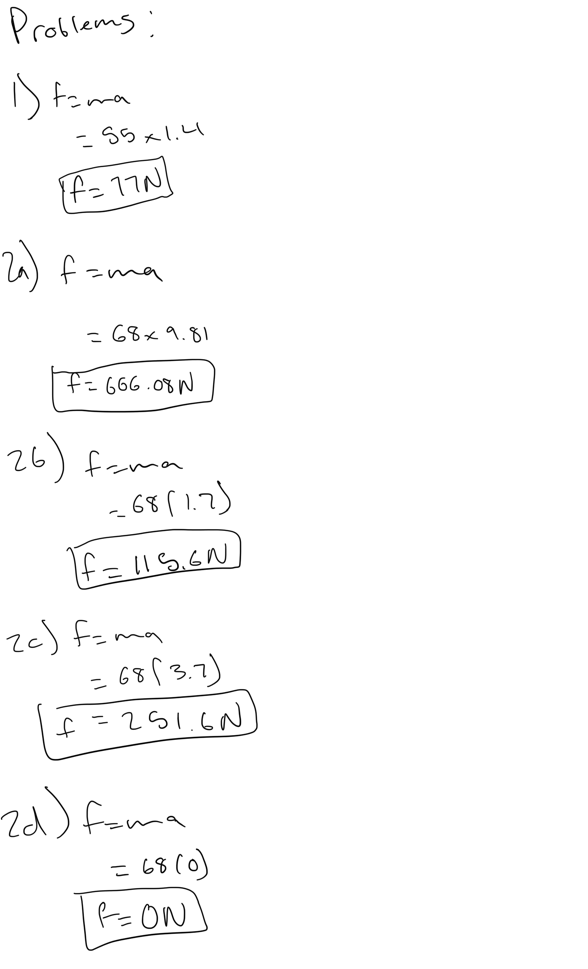 Problems:
1) f=ma
= 55 x 1.4
f= 77N
2a) f=ma
= 68 x 9.81
f= 666.08N
2b) f=ma
= 68(1.7)
f= 115.6N
2c) f=ma
= 68(3.7)
f = 251.6N
2d) f=ma
= 68(0)
f= 0N